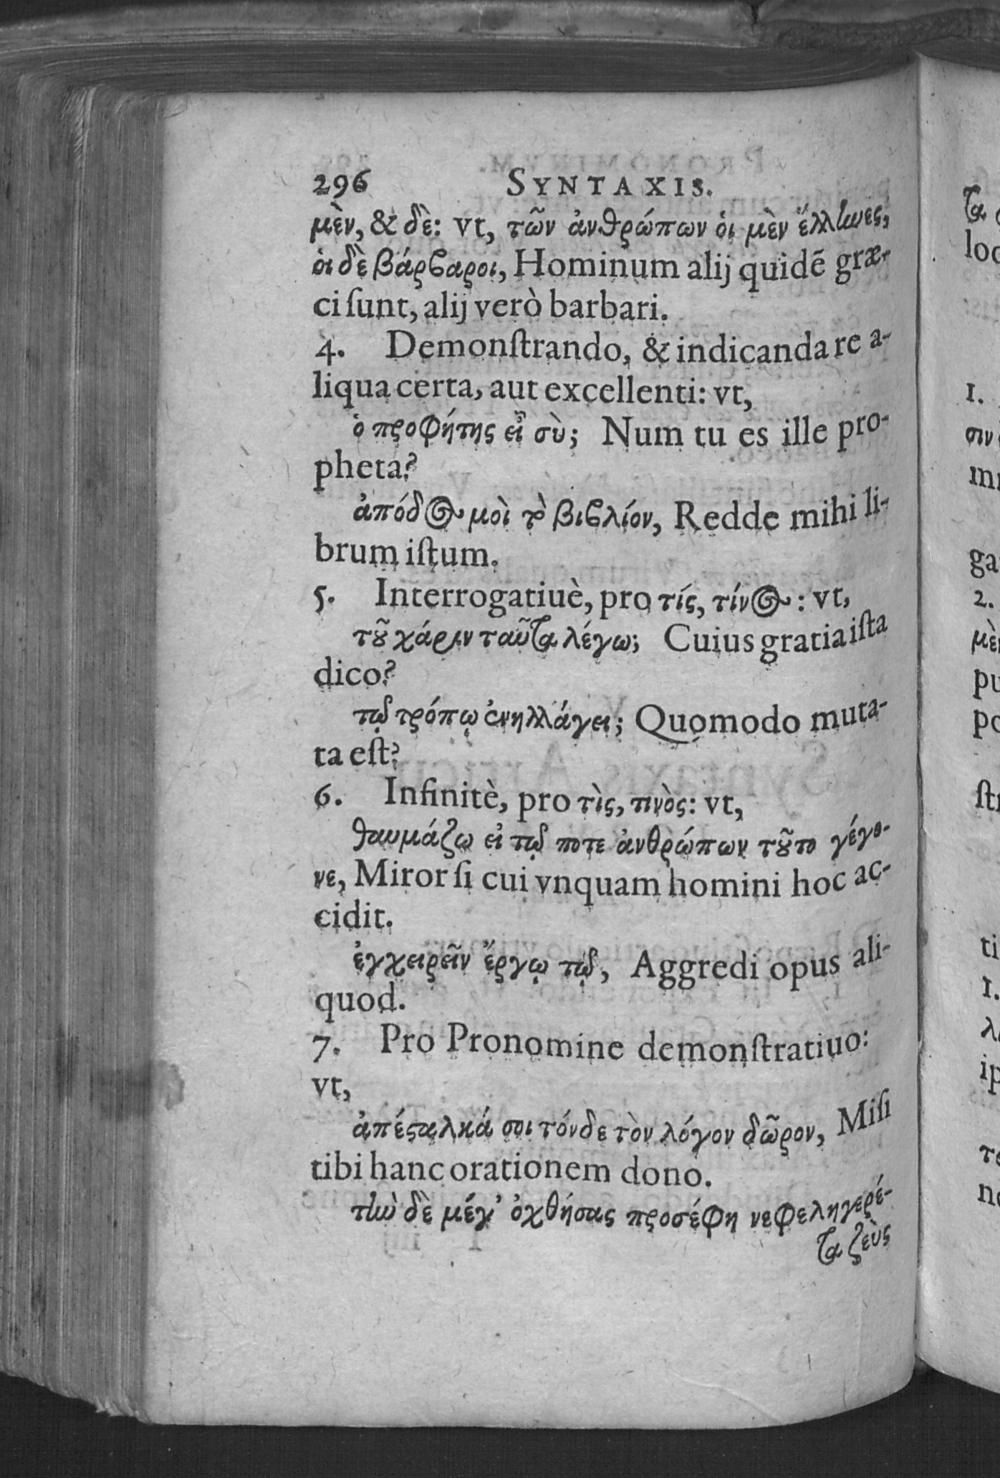 296 SYNTAXIS.
μὲν, & δὲ: vt, τῶν ἀνθρώπων ὁι μὲν ἕλλωες,
ὁι δὲ βάρβαροι, Hominum alij quidẽ græ-
ci ſunt, alij verò barbari.
4. Demonſtrando, & indicanda re a-
liqua certa, aut excellenti: vt,
ὁ προφήτης εἶ σὺ; Num tu es ille pro-
pheta?
ἀπόδος μοὶ τὸ βιβλίον, Redde mihi li-
brum iſtum.
5. Interrogatiuè, pro τίς, τίνος: vt,
τοῦ χάριν ταῦτα λέγω; Cuius gratia iſta
dico?
τῷ τρόπῳ ἐνηλλάγει; Quomodo muta-
ta eſt?
6. Infinitè, pro τὶς, τινὸς: vt,
θαυμάζω εἰ τῷ ποτε ἀνθρώπων τοῦτο γέγο-
νε, Miror ſi cui vnquam homini hoc ac-
cidit.
ἐγχειρεῖν ἔργῳ τῷ, Aggredi opus ali-
quod.
7. Pro Pronomine demonſtratiuo:
vt,
ἀπέσταλκά σοι τόνδε τὸν λόγον δῶρον, Miſi
tibi hanc orationem dono.
τὴν δὲ μέγ’ ὀχθήσας προσέφη νεφεληγερέ-
τα ζεὺς